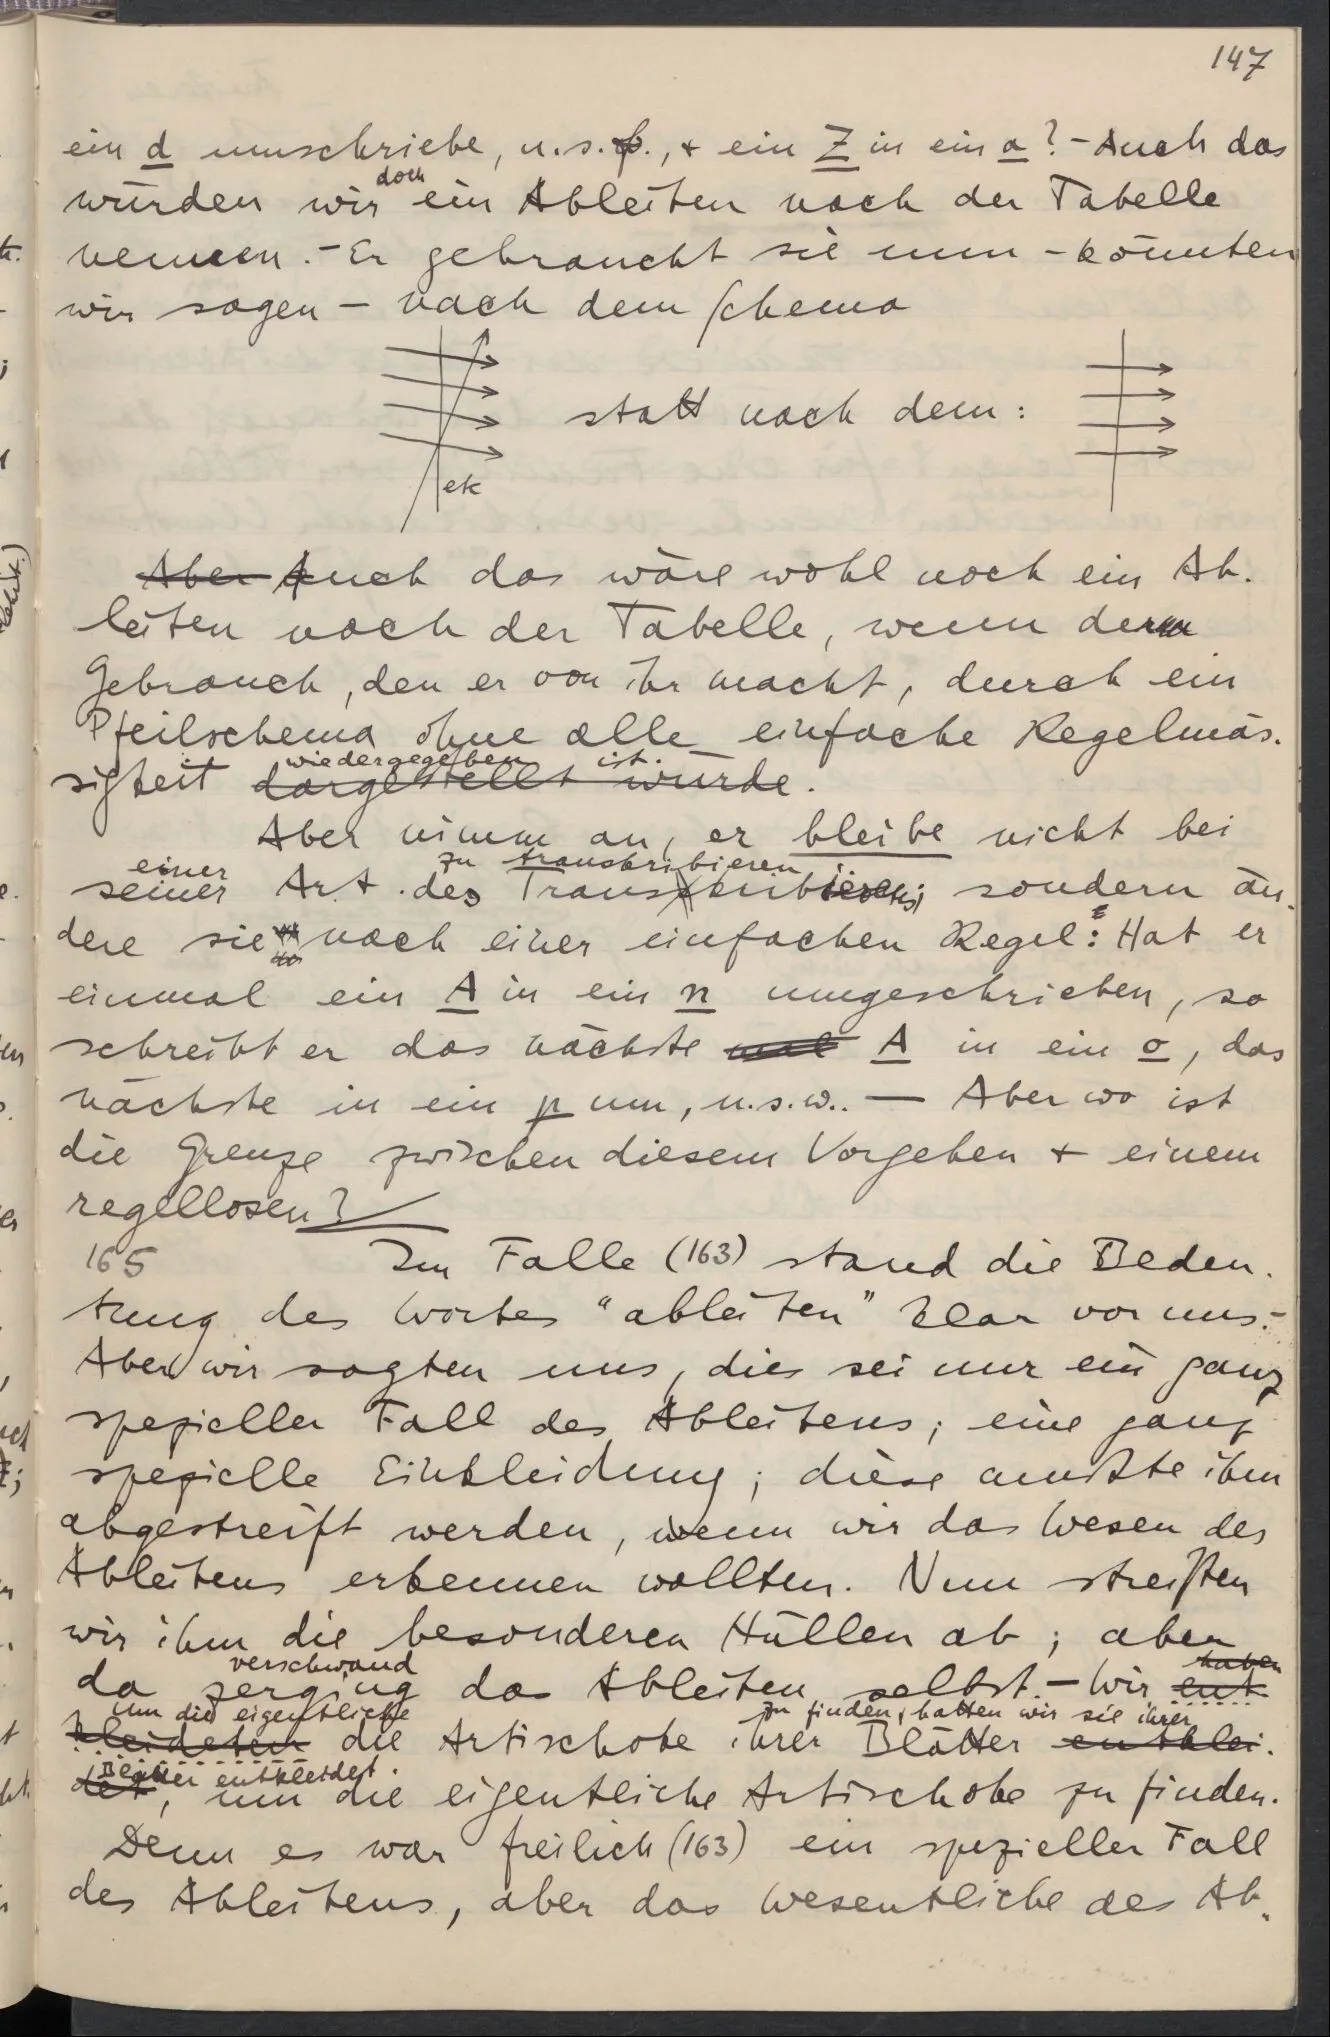 147
ein d umschriebe, u.s.f., + ein Z in ein a? – Auch das
doch
würden wir ein Ableiten nach der Tabelle
nennen. – Er gebraucht sie nun – könnten
wir sagen – nach dem Schema
statt nach dem:
etc
Aber Auch das wäre wohl noch ein Ab-
leiten nach der Tabelle, wenn der
Gebrauch, den er von ihr macht, durch ein
Pfeilschema ohne alle einfache Regelmäs-
wiedergegeben ist.
sigkeit dargestellt würde.
Aber nimm an, er bleibe nicht bei
einer zu transkribieren
seiner Art des Transkribierens; sondern än-
dere sie nach einer einfachen Regel: Hat er
einmal ein A in ein n umgeschrieben, so
schreibt er das nächste mal A in ein o, das
nächste in ein p um, u.s.w.. — Aber wo ist
die Grenze zwischen diesem Vorgehen + einem
regellosen?
165 Im Falle (163) stand die Bedeu-
tung des Wortes "ableiten" klar vor uns. –
Aber wir sagten uns, dies sei nur ein ganz
spezieller Fall des Ableitens; eine ganz
spezielle Einkleidung; diese mußte ihm
abgestreift werden, wenn wir das Wesen des
Ableitens erkennen wollten. Nun streiften
wir ihm die besonderen Hüllen ab; aber
verschwand haben
da zerging das Ableiten selbst. – Wir ent-
um die eigentliche zu finden, hatten wir sie ihrer
kleideten die Artischoke ihrer Blätter entklei-
Blätter entkleidet.
det, um die eigentliche Artischoke zu finden.
Denn es war freilich (163) ein spezieller Fall
des Ableitens, aber das Wesentliche des Ab-